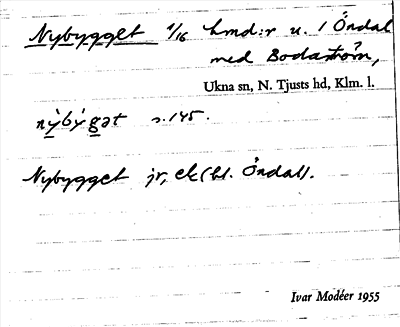 Nybygget 1/16 hmd:r u. 1 Öndal
med Bodaström,
Ukna sn, N. Tjusts hd, Klm. l.
nỳbýgət s. 145.
Nybygget jr, ek (bl. Öndal).
Ivar Modéer 1955